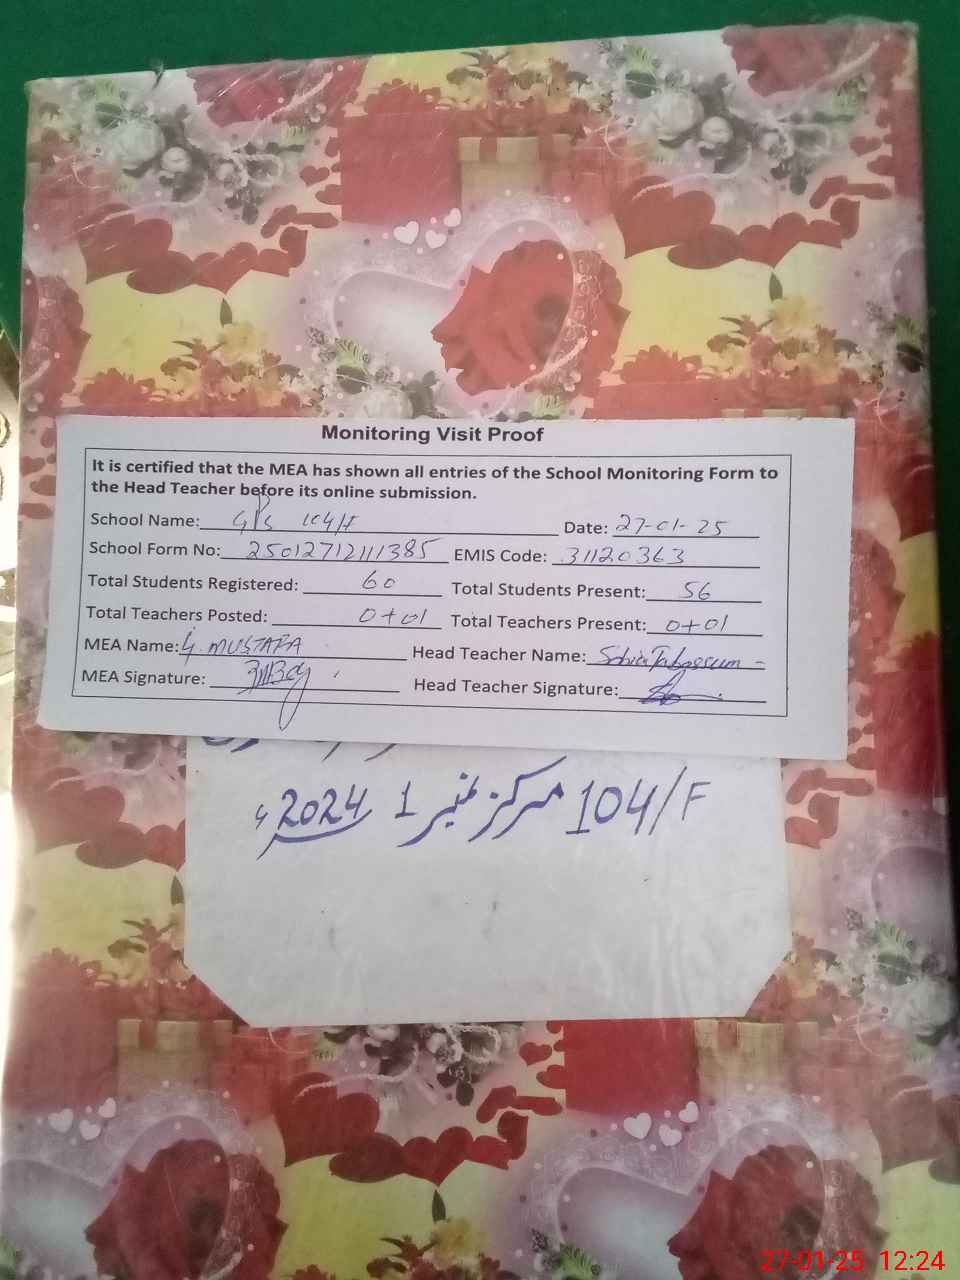 Monitoring Visit Proof
It is certified that the MEA has shown all entries of the School Monitoring Form to
the Head Teacher before its online submission.
School Name: GPS 104/F Date: 27-01-25
School Form No: 25012712111385 EMIS Code: 31120363
Total Students Registered: 60 Total Students Present: 56
Total Teachers Posted: 0+01 Total Teachers Present: 0+01
MEA Name: G. MUSTAFA Head Teacher Name: Tabassum
MEA Signature: Head Teacher Signature:
104/F مرکز نمبر 1 2024ء
27-01-25 12:24